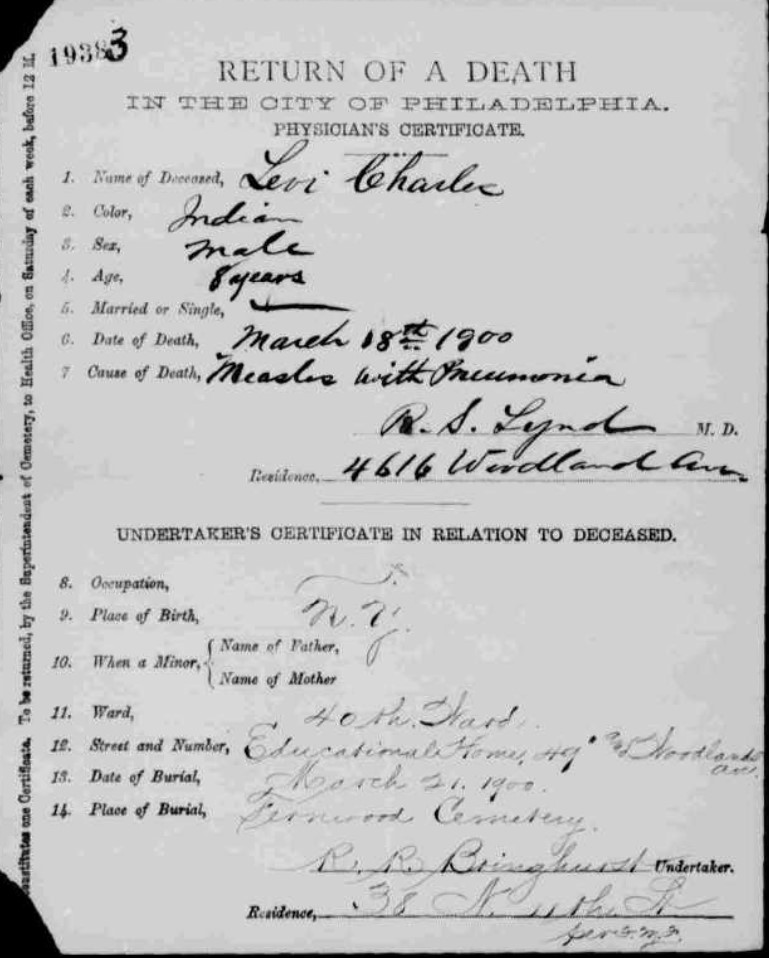 19383
RETURN OF A DEATH
IN THE CITY OF PHILADELPHIA.
PHYSICIAN'S CERTIFICATE.
1. Name of Deceased, Levi Charles
2. Color, Indian
3. Sex, male
4. Age, 8 years
5. Married or Single,
6. Date of Death, March 18th 1900
7 Cause of Death, Measles with Pneumonia
R. S. Lynd M. D.
Residence, 4616 Woodland Ave
UNDERTAKER'S CERTIFICATE IN RELATION TO DECEASED.
8. Occupation,
9. Place of Birth, N. Y.
10. When a Minor, Name of Father,
Name of Mother
11. Ward, 40th. Ward.
12. Street and Number, Educational Home, 49" Woodlands av.
13. Date of Burial, March 21. 1900.
14. Place of Burial, Fernwood Cemetery.
R. R. Bringhurst Undertaker.
Residence, 38 N. 11th. St
onstitutes one Certificate. To be returned, by the Superintendent of Cemetery, to Health Office, on Saturday of each week, before 12 M.